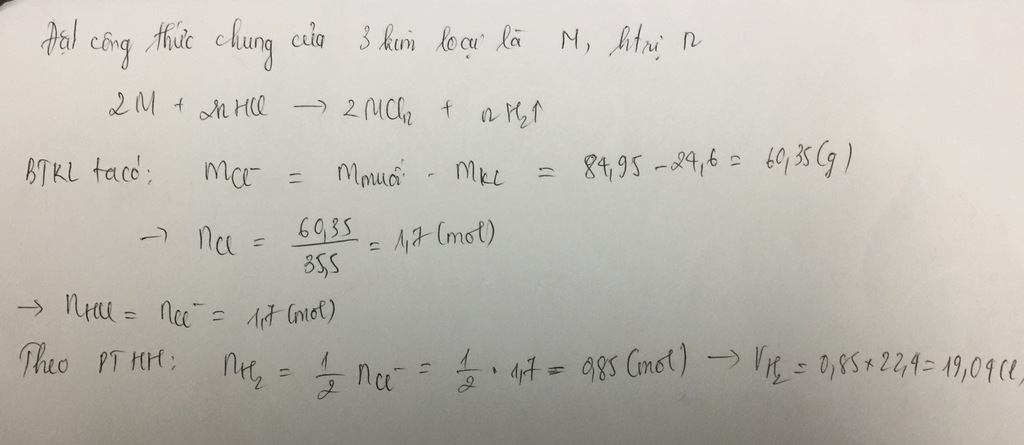 Đặt công thức chung của 3 kim loại là M, htrị n
2M + 2nHCl → 2MCln + nH2↑
BTKL ta có: mCl- = mmuối - mKL = 84,95 - 24,6 = 60,35(g)
→ nCl = 60,35/35,5 = 1,7 (mol)
→ nHCl = nCl- = 1,7 (mol)
Theo PTHH: nH2 = 1/2 nCl- = 1/2 . 1,7 = 0,85 (mol) → VH2 = 0,85 x 22,4 = 19,04 (l)